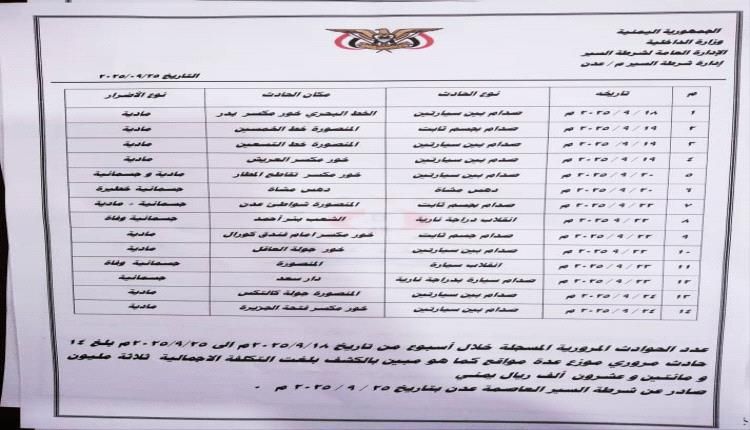 الجمهورية اليمنية
وزارة الداخلية
الإدارة العامة لشرطة السير
إدارة شرطة السير م / عدن
التاريخ ٢٠٢٥/٠٩/٢٥
م تاريخه نوع الحادث مكان الحادث نوع الأضرار
١ ١٨ / ٩ / ٢٠٢٥ م صدام بين سيارتين الخط البحري خور مكسر بدر مادية
٢ ١٩ / ٩ / ٢٠٢٥ م صدام بجسم ثابت المنصورة خط الخمسين مادية
٣ ١٩ / ٩ / ٢٠٢٥ م صدام بين سيارتين المنصورة خط التسعين مادية
٤ ١٩ / ٩ / ٢٠٢٥ م صدام بين سيارتين خور مكسر العريش مادية
٥ ٢٠ / ٩ / ٢٠٢٥ م صدام بين سيارتين خور مكسر تقاطع المطار مادية و جسمانية
٦ ٢٠ / ٩ / ٢٠٢٥ م دهس مشاة دهس مشاة جسمانية خطيرة
٧ ٢٢ / ٩ / ٢٠٢٥ م صدام بجسم ثابت المنصورة شواطئ عدن جسمانية - مادية
٨ ٢٢ / ٩ / ٢٠٢٥ م انقلاب دراجة نارية الشعب بئر أحمد جسمانية وفاة
٩ ٢٣ / ٩ / ٢٠٢٥ م صدام جسم ثابت خور مكسر امام فندق كورال مادية
١٠ ٢٣ / ٩ / ٢٠٢٥ م صدام بين سيارتين خور جولة العاقل مادية
١١ ٢٣ / ٩ / ٢٠٢٥ م انقلاب سيارة المنصورة جسمانية وفاة
١٢ ٢٣ / ٩ / ٢٠٢٥ م صدام سيارة بدراجة نارية دار سعد جسمانية
١٣ ٢٤ / ٩ / ٢٠٢٥ م صدام بين سيارتين المنصورة جولة كالتكس مادية
١٤ ٢٤ / ٩ / ٢٠٢٥ م صدام بين سيارتين خور مكسر فتحة الجزيرة مادية
عدد الحوادث المرورية المسجلة خلال أسبوع من تاريخ ٢٠٢٥/٩/١٨م الى ٢٠٢٥/٩/٢٥م بلغ ١٤
حادث مروري موزع عدة مواقع كما هو مبين بالكشف بلغت التكلفة الاجمالية ثلاثة مليون
و مائتين و عشرون ألف ريال يمني
صادر عن شرطة السير العاصمة عدن بتاريخ ٢٥ / ٩ / ٢٠٢٥ م .